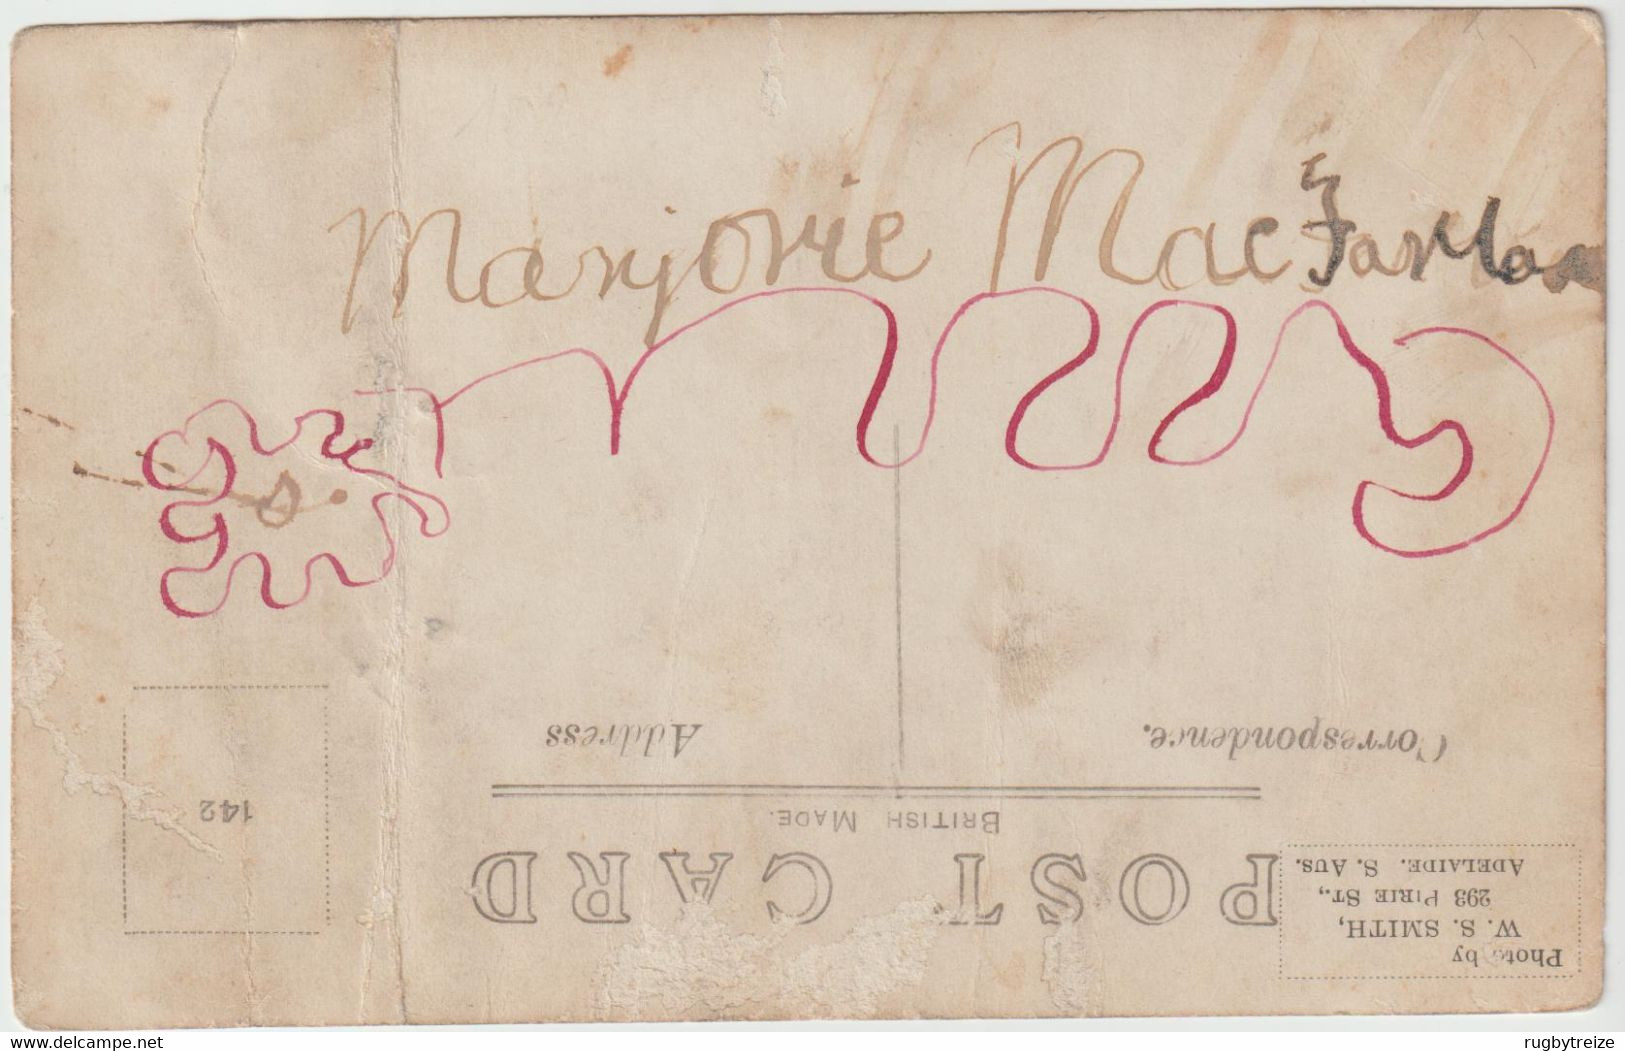 Marjorie MacFarlan
Photo by
W. S. SMITH,
293 PIRIE ST.,
ADELAIDE. S. AUS.
POST CARD
BRITISH MADE.
142
Correspondence.
Address
delcampe.net
rugbytreize